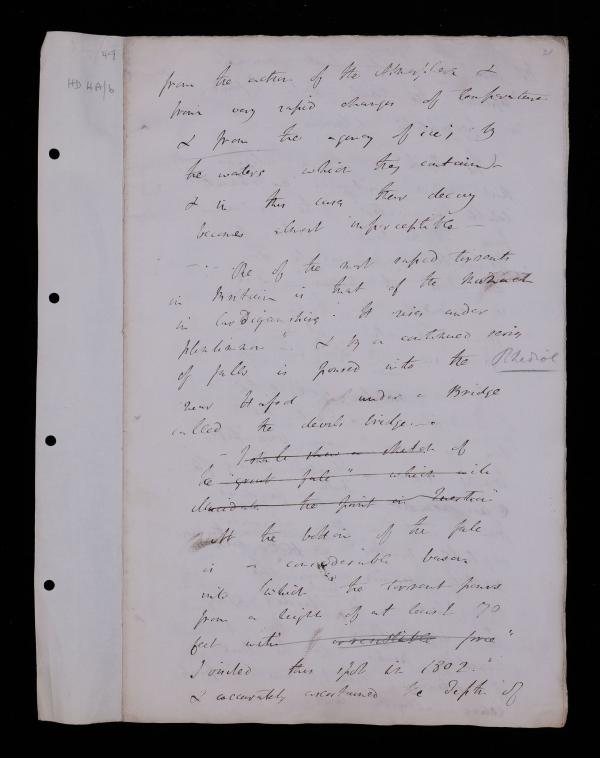 49
HD 4A/6
21
from the action of the Atmosphere &
from very rapid changes of Temperature
& from the agency of ice; by
the waters which they contained
& in this case their decay
becomes almost imperceptible —
— One of the most rapid torrents
in Britain is that of the
in Cardiganshire. It rises under
Plinlimmon & by a continued series
of falls is poured into the Rhediol
near Hafod under a Bridge
called the devils bridge. —
— I shall show a sketch of
the great fall" which will
elucidate the point in Question
At the bottom of the fall
is a considerable bason
into which the torrent pours
from a hight of at least 70
feet with irresistible force"
I visited this spot in 1802.
& accurately ascertained the depth of